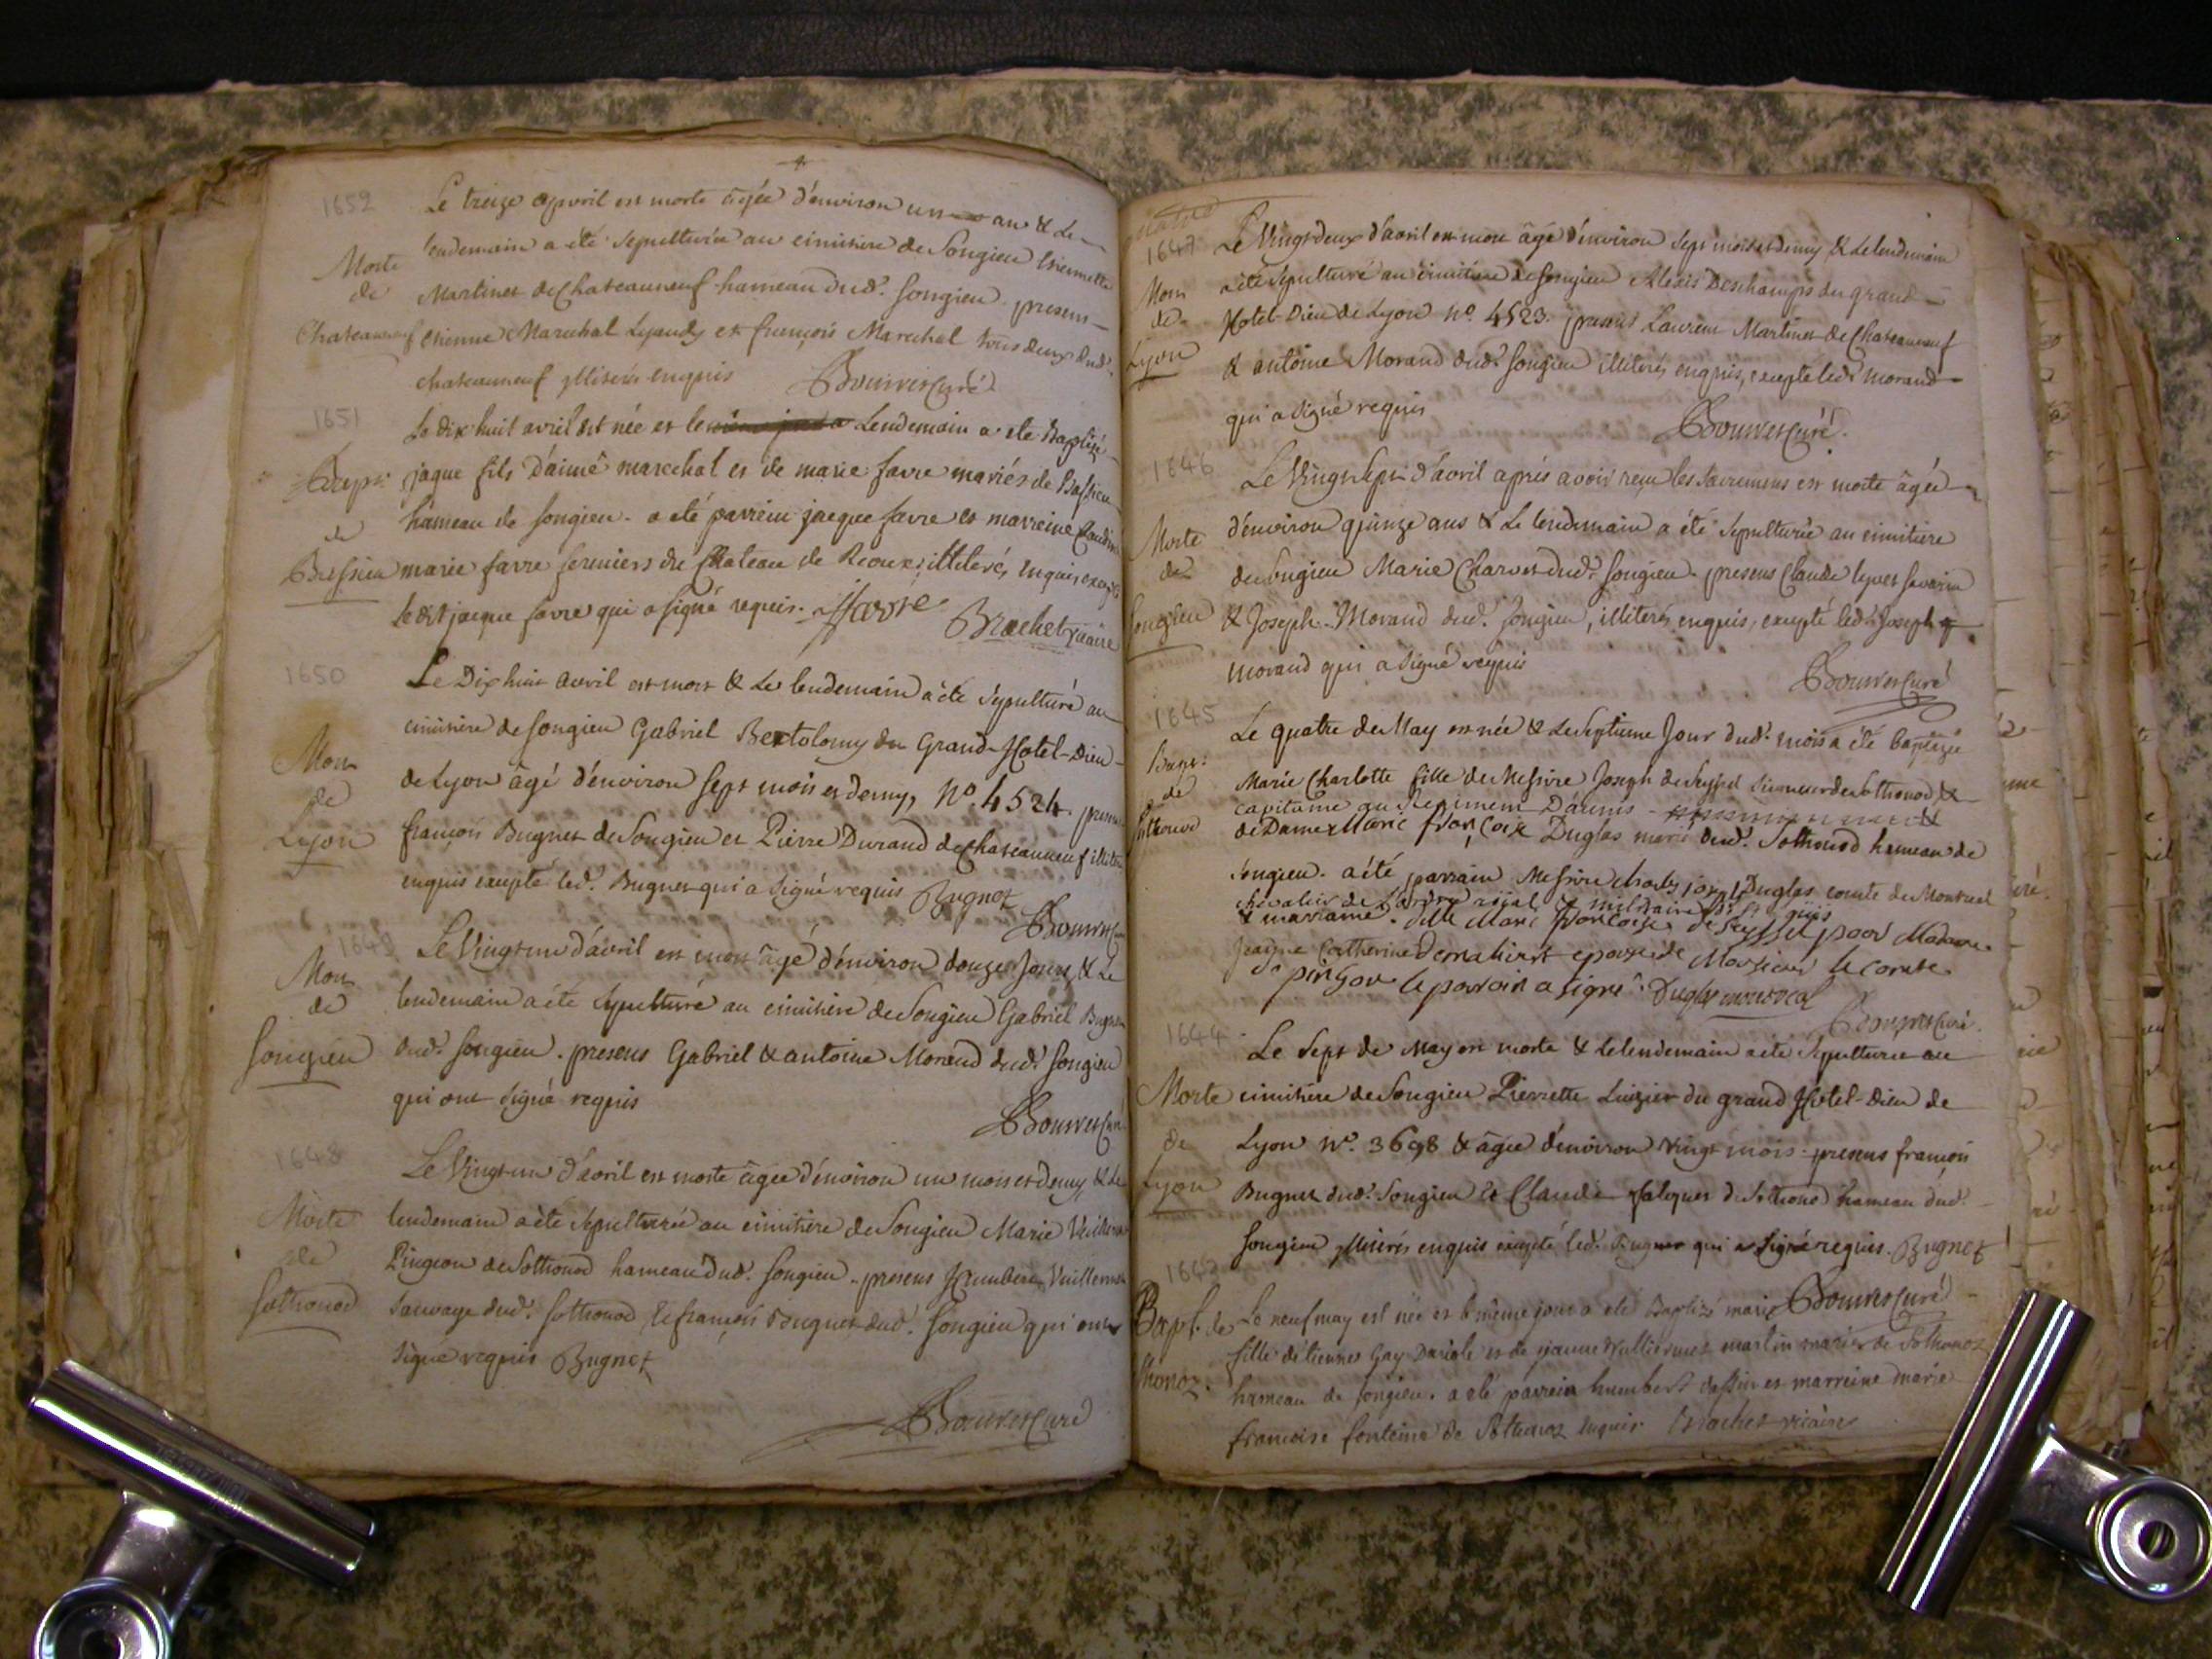 1652
Le treize avril est morte âgée d'environ un an & le
lendemain a été sepulturée au cimitière de Songieu
Morte
de
Chateauneuf
Martinet de Chateauneuf hameau dud. Songieu presens
etienne Marechal Lyaudy et françois Marechal tous deux dud.
chateauneuf illiterés enquis Bouvet Curé
1651
Bapt.
de
Bassieu
Le dix huit avril est née et le lendemain a ete Baptisé
jaque fils d'aimé marechal et de marie favre mariés de Bassieu
hameau de songieu. a eté parrein jacque favre et marreine Claudine
marie favre fermiers du chateau de illiterés enquis excepté
le dit jacque favre qui a signé requis. favre Brochet vicaire
1650
Mort
de
Lyon
Le Dix huit avril est mort & le lendemain a été sepulturé au
cimitière de songieu Gabriel Bertolomy du Grand-Hotel-Dieu
de Lyon âgé d'environ sept mois et demy, No. 4524. presens
françois Bugnet de Songieu et Pierre Durand de Chateauneuf illiterés
enquis excepté led. Bugnet qui a signé requis Bugnet
Bouvet Curé
1649
Mort
de
Songieu
Le Vingt un d'avril est mort âgé d'environ douze jours, & le
lendemain a été sepulturé au cimitière de Songieu Gabriel Bugnet
dud. Songieu. presens Gabriel & antoine Morand dud. Songieu
qui ont signé requis
Bouvet Curé
1648
Morte
de
Sothonod
Le Vingt un d'avril est morte âgée d'environ un mois et demy, & le
lendemain a été sepulturée au cimitière de Songieu Marie
Pingeon de Sothonod hameau dud. Songieu. presens Humbert Vuillermet
Sauvage dud. Sothonod, & françois Bugnet dud. Songieu qui ont
signé requis Bugnet
Bouvet Curé
1647
Mort
de
Lyon
Le Vingt deux d'avril est mort âgé d'environ sept mois et demy & le lendemain
a été sepulturé au cimitière de Songieu Alexis Deschamps du grand
Hotel-Dieu de Lyon No. 4523. presens Laurent Martinet de Chateauneuf
& antoine Morand dud. Songieu illiterés enquis, excepté led. morand
qui a signé requis
Bouvet Curé.
1646
Morte
de
Songieu
Le Vingt sept d'avril aprés avoir reçu les sacremens est morte âgée
d'environ quinze ans & le lendemain a été sepulturée au cimitière
de Songieu Marie Charvet dud. Songieu. presens Claude
& Joseph Morand dud. Songieu, illiterés enquis, excepté led. Joseph
morand qui a signé requis
Bouvet Curé
1645
Bapt:
de
Sothonod
Le quatre de May est née & le septieme Jour dud. mois a été baptizée
Marie Charlotte fille de Messire Joseph de Seyssel de Sothonod &
capitaine au Regiment D'aunis
de Dame Marie françoise Duglas mariés dud. Sothonod hameau de
Songieu. a été parrain Messire charles joseph Duglas comte de Montreal
chevalier de l'ordre royal & militaire de St Louis
& marraine. delle Marie françoise de Seyssel pour Madame
Jeanne Catherine Demalivert epouse de Monsieur le comte
de pingon le parrain a signé. Duglas montreal
Bouvet Curé.
1644
Morte
de
Lyon
Le Sept de May est morte & le lendemain a été sepulturée au
cimitière de Songieu Pierrette Luizier du grand Hotel-Dieu de
Lyon No. 3698 & âgée d'environ vingt mois. presens françois
Bugnet dud. Songieu & Claude de Sothonod hameau dud.
Songieu illiterés enquis excepté led. Bugnet qui a signé requis. Bugnet
Bouvet Curé
Bapt. de
Le neuf may est née et le même jour a eté Baptisé marie
fille d'etienne Gay et de jeanne Vulliermet martin mariés de Sothonoz
hameau de songieu. a eté parrein humbert et marreine marie
francoise fonteine de Sothonoz enquis Brochet vicaire